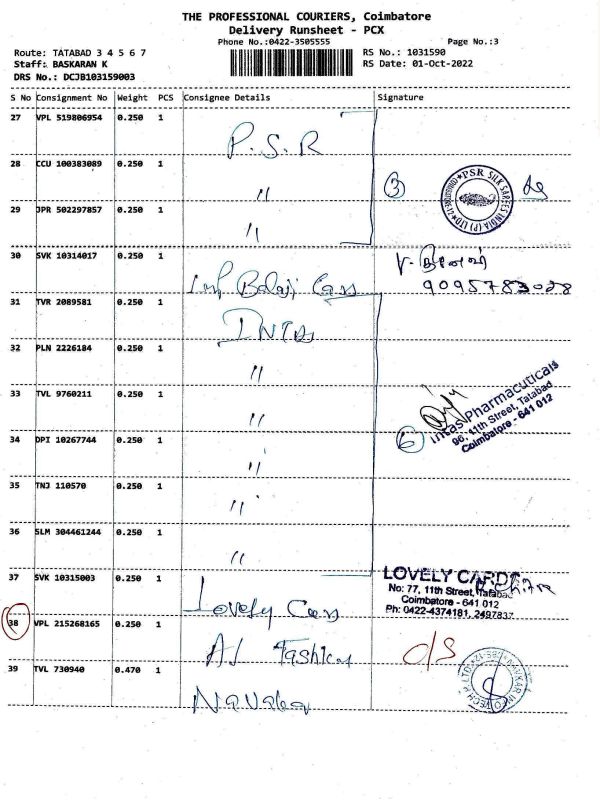 THE PROFESSIONAL COURIERS, Coimbatore
Delivery Runsheet - PCX
Phone No.:0422-3505555
Page No.:3
Route: TATABAD 3 4 5 6 7
RS No.: 1031590
Staff: BASKARAN K
RS Date: 01-Oct-2022
DRS No.: DCJB103159003
S No Consignment No Weight PCS Consignee Details Signature
27 VPL 519806954 0.250 1 P.S.R
28 CCU 100383089 0.250 1 " 3
PSR SILK SAREES INDIA (P) LTD
29 JPR 502297857 0.250 1 "
30 SVK 10314017 0.250 1 Balaji Cars
9095783028
31 TVR 2089581 0.250 1 INTAS
32 PLN 2226184 0.250 1 "
33 TVL 9760211 0.250 1 "
Intas Pharmacuticals
96, 11th Street, Tatabad
Coimbatore - 641 012
34 DPI 10267744 0.250 1 " 6
35 TNJ 110570 0.250 1 "
36 SLM 304461244 0.250 1 "
37 SVK 10315003 0.250 1 Lovely Cars
LOVELY CARDS
No: 77, 11th Street, Tatabad
Coimbatore - 641 012
Ph: 0422-4374181, 2497837
38 VPL 215268165 0.250 1 AJ Fashion O/S
39 TVL 730940 0.470 1